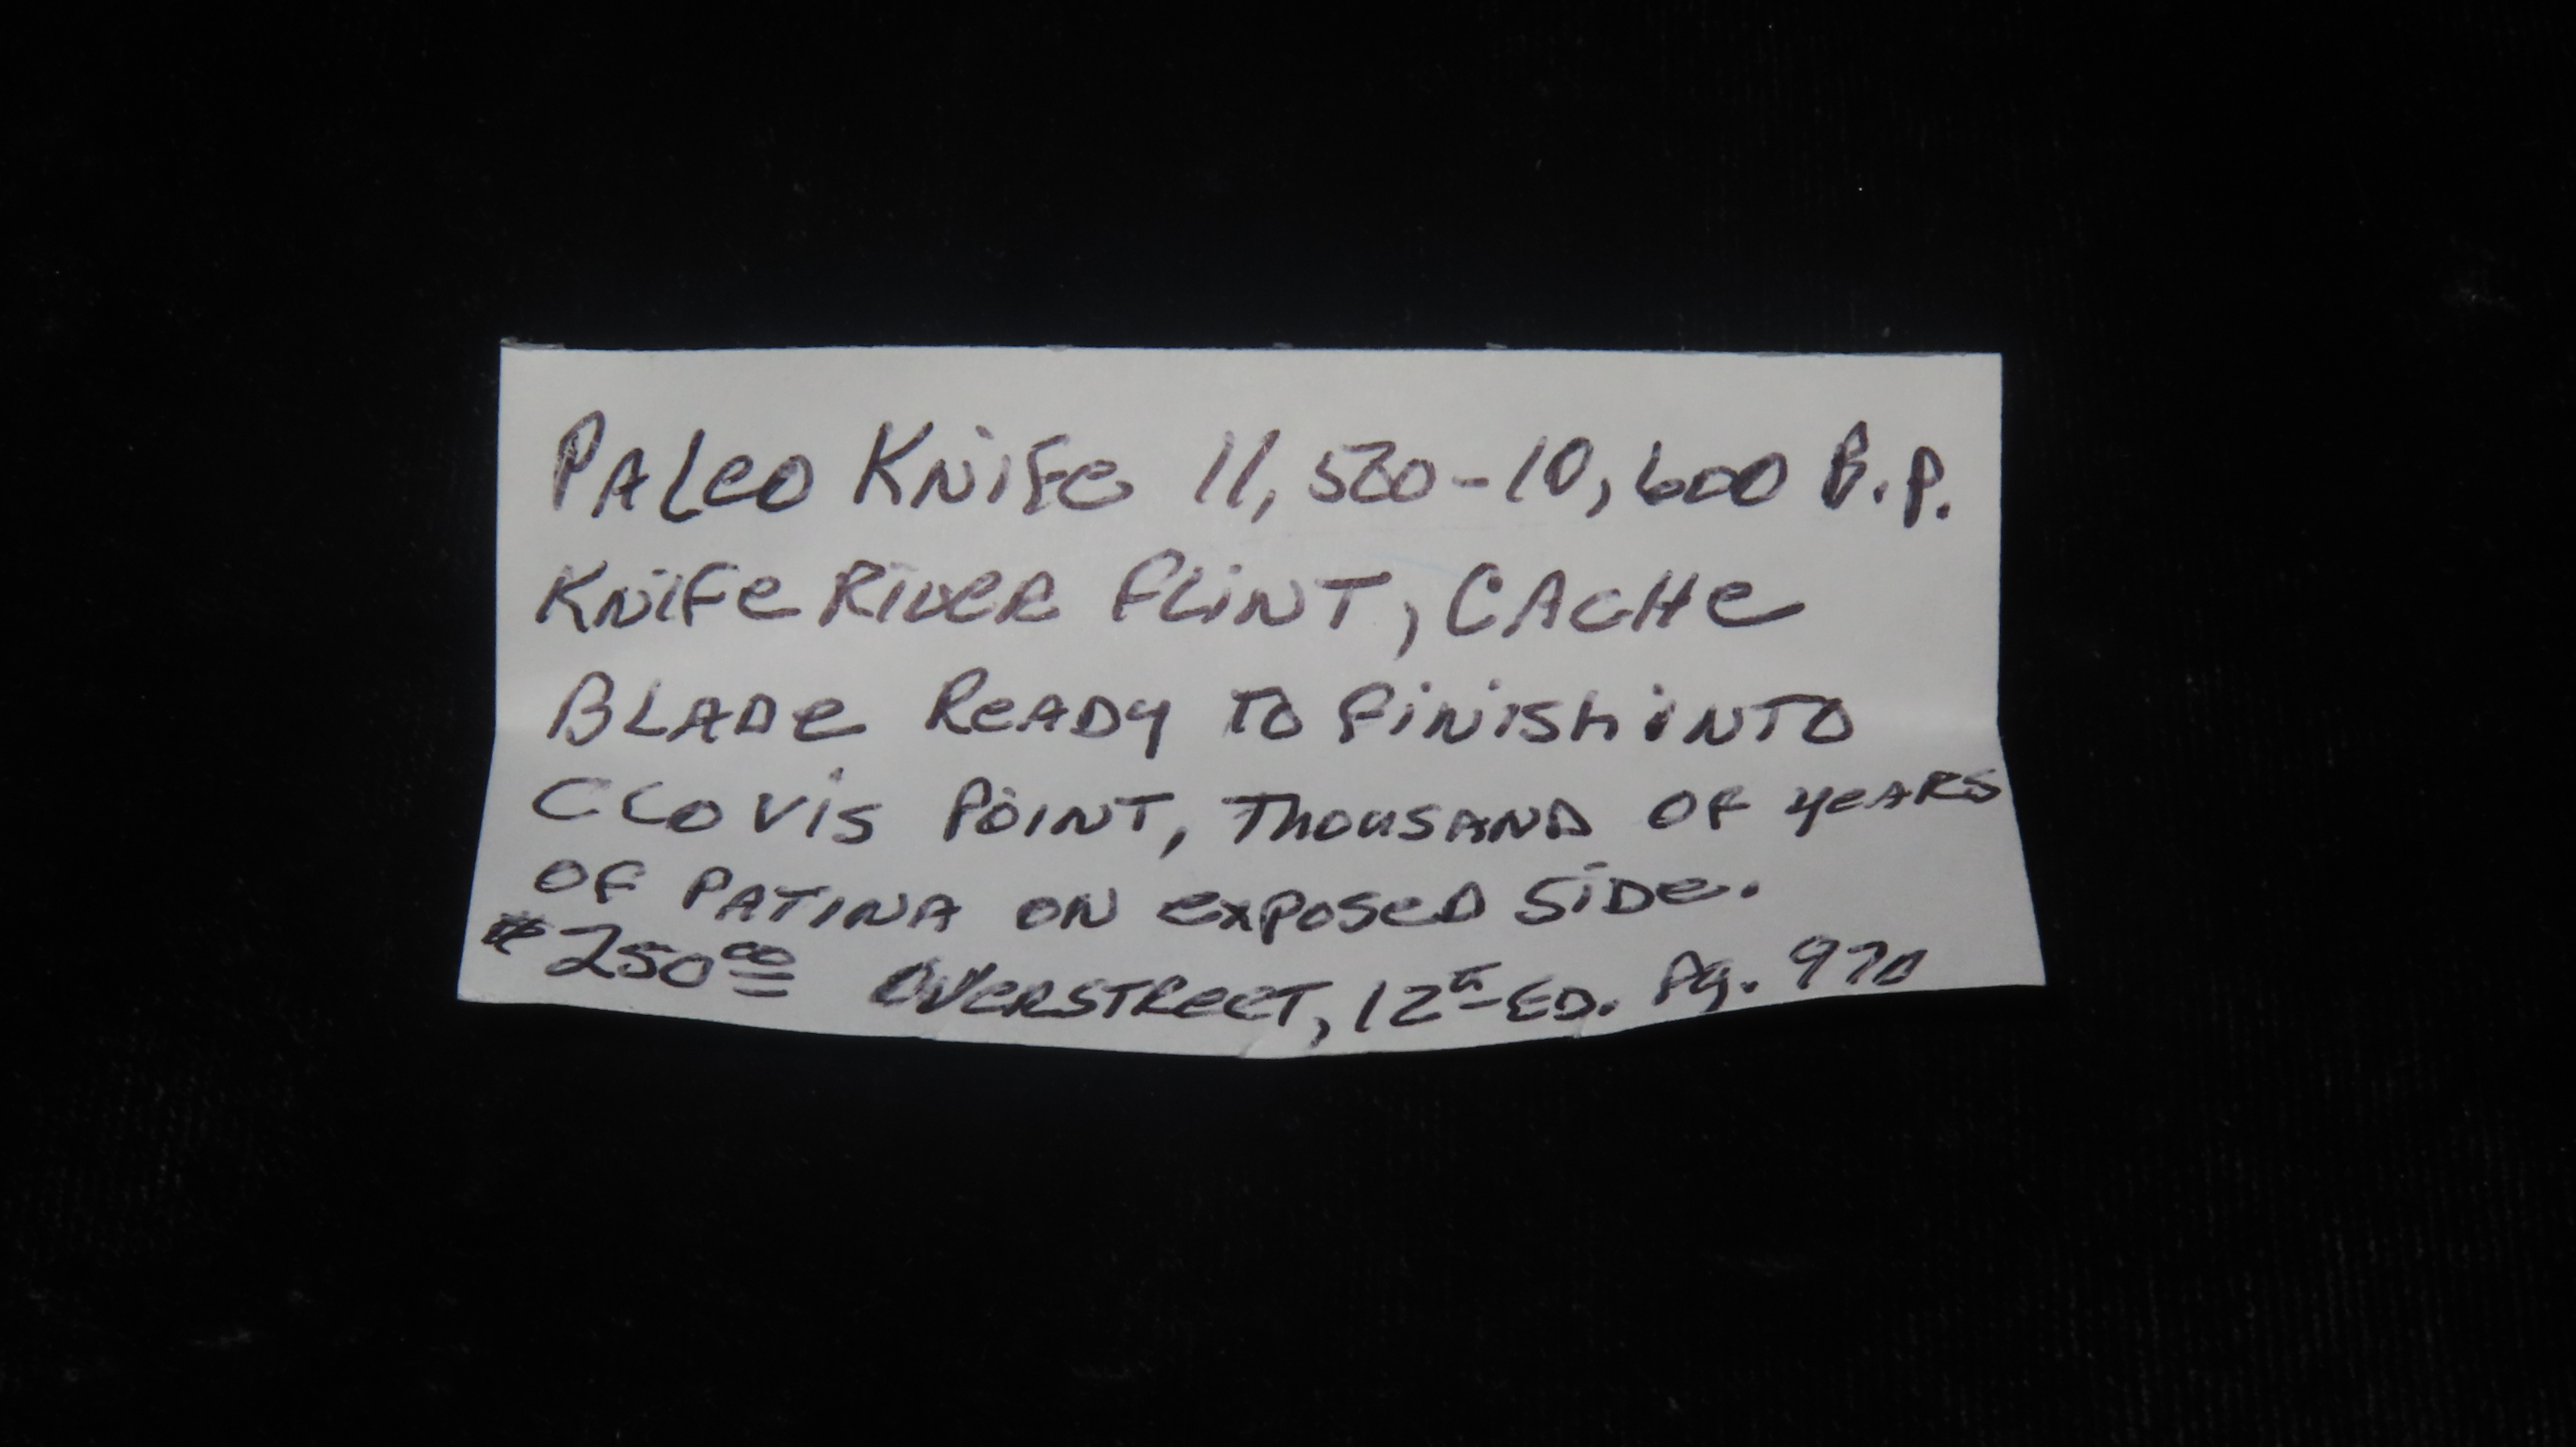 PALeO KNiFe 11,500-10,600 B.P.
KNiFe RiveR FLiNT, CACHe
BLADe ReADy TO FiNiSh iNTO
CLOViS POiNT, THOUSAND OF yeARS
OF PATiNA ON exPOSeD SiDe.
$250.00 OVeRSTReeT, 12th ED. Pg. 970